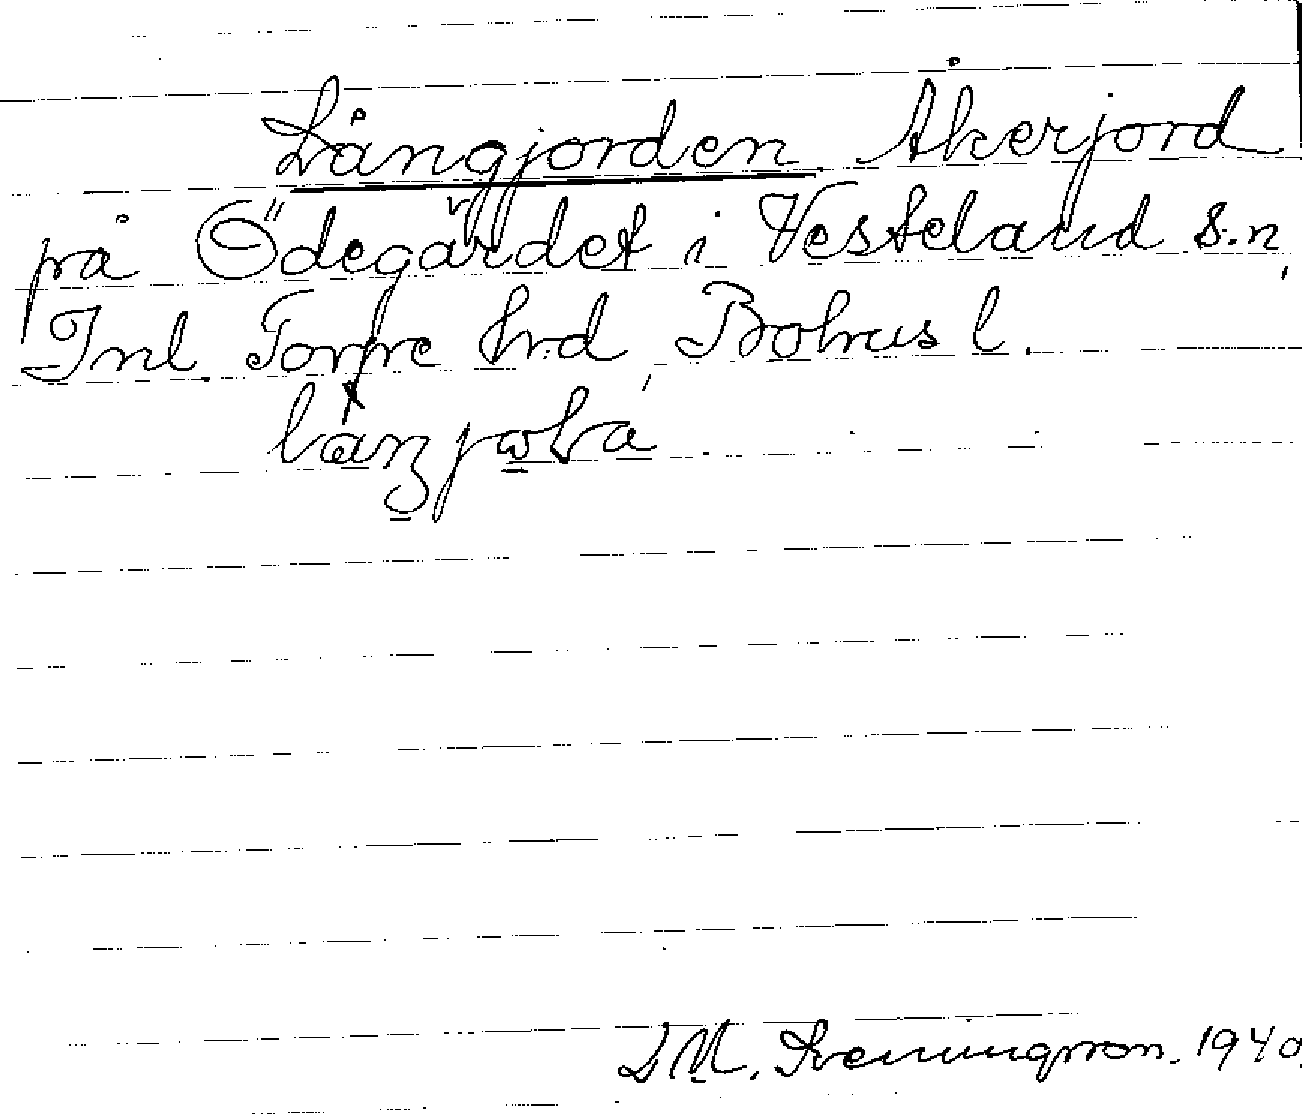 Långjorden Åkerjord
på Ödegärdet i Vesteland s.n,
Inl. Torpe hrd, Bohus l.
Sveningsson. 1940.